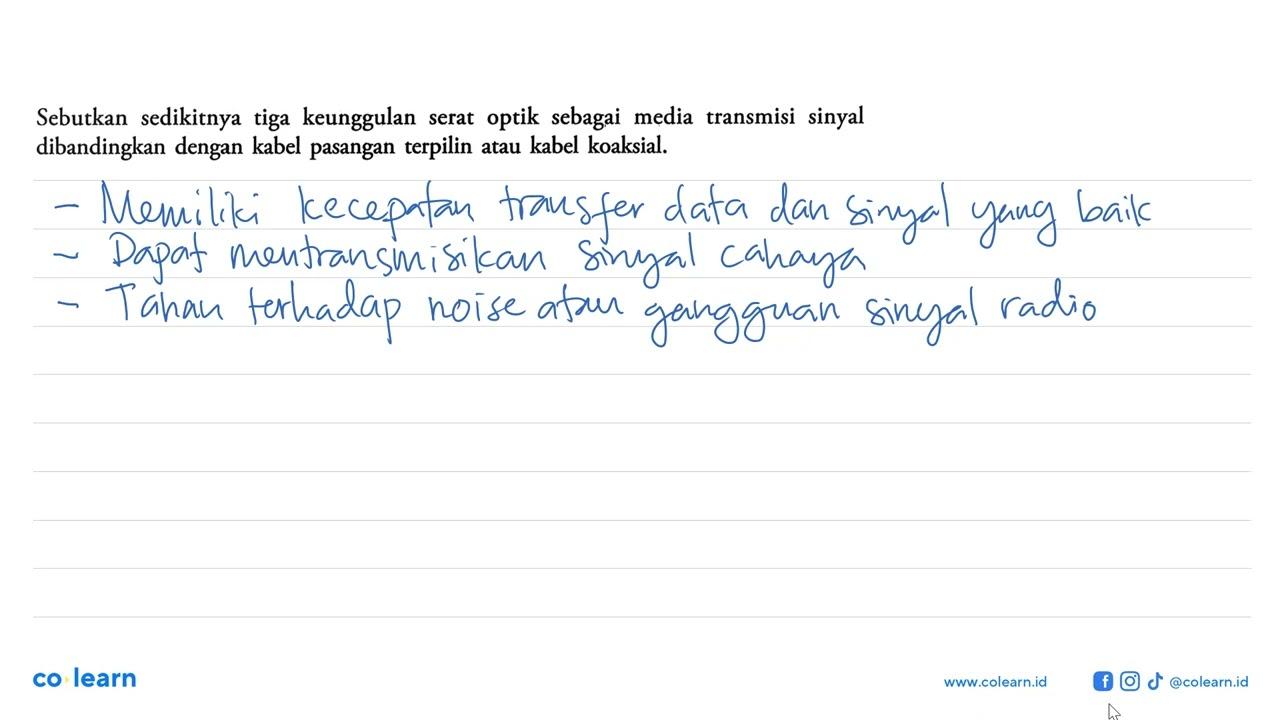 Sebutkan sedikitnya tiga keunggulan serat optik sebagai media transmisi sinyal
dibandingkan dengan kabel pasangan terpilin atau kabel koaksial.
- Memiliki kecepatan transfer data dan sinyal yang baik
- Dapat mentransmisikan sinyal cahaya
- Tahan terhadap noise atau gangguan sinyal radio
co learn
www.colearn.id
@colearn.id